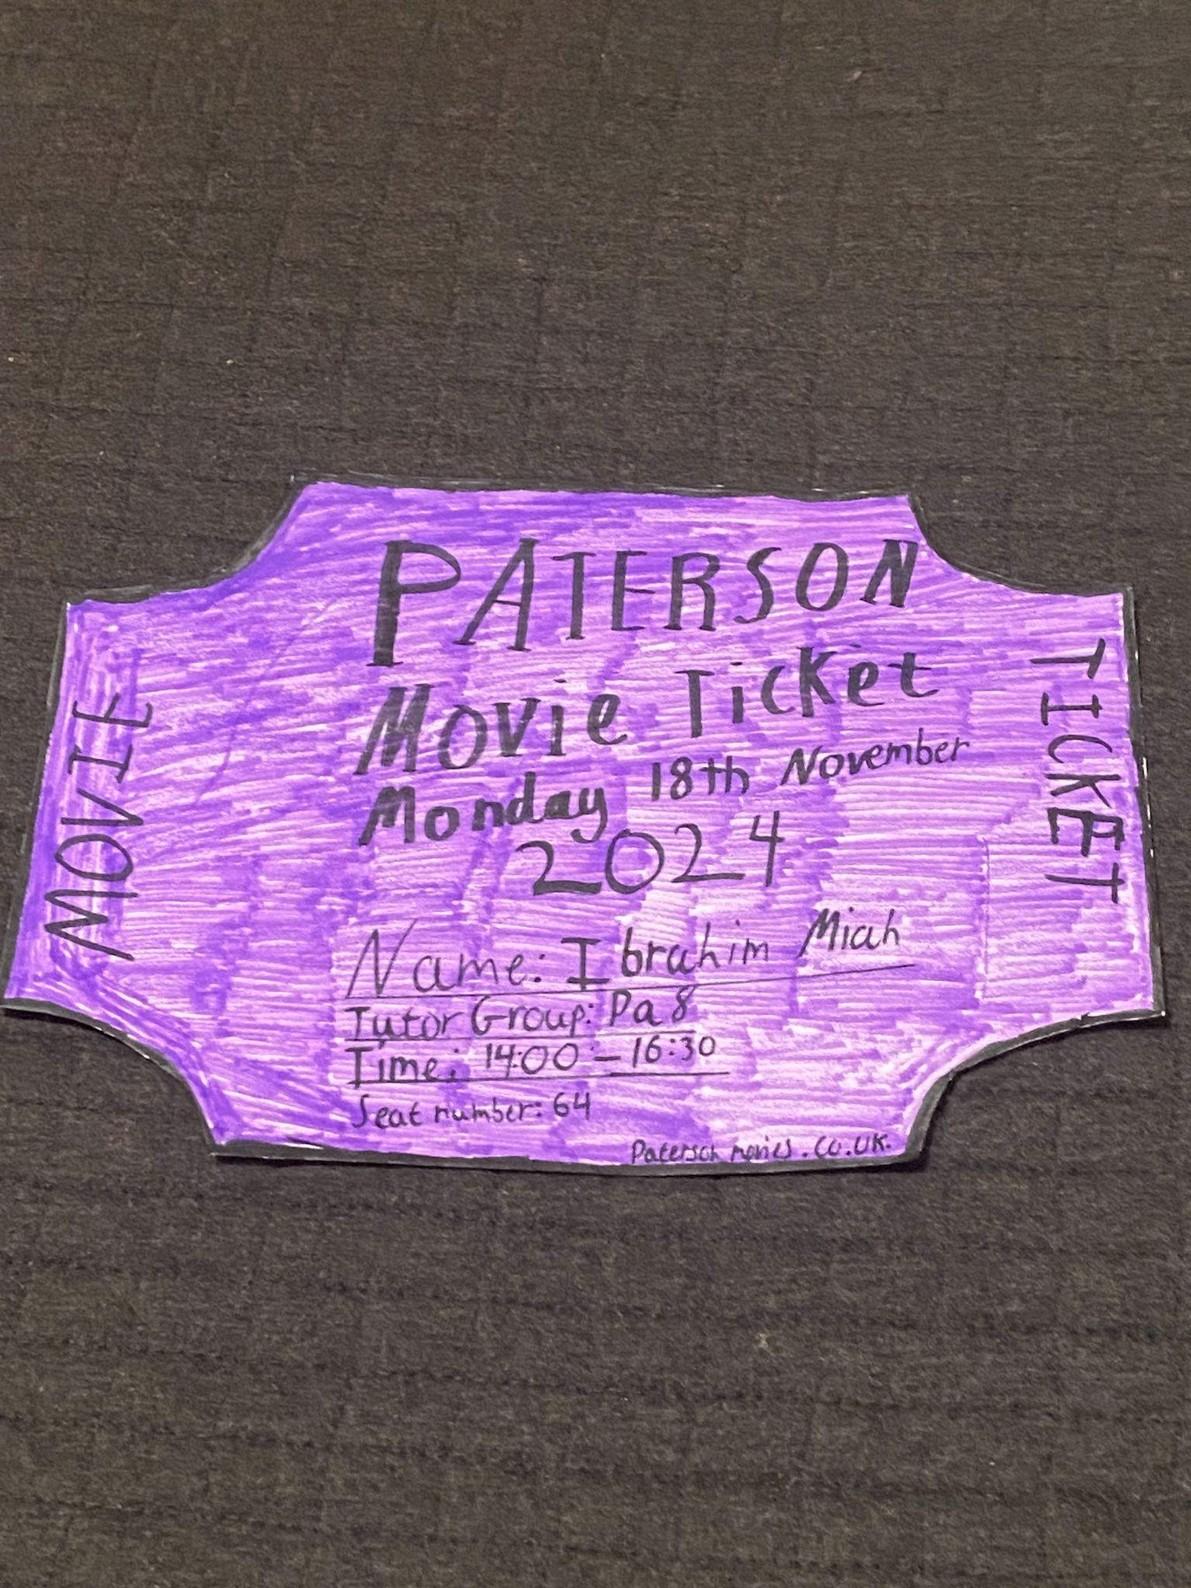 PATERSON
Movie Ticket
Monday 18th November
2024
MOVIE
TICKET
Name: Ibrahim Miah
Tutor Group: Pa8
Time: 14:00 - 16:30
Seat number: 64
Paterson movies.co.uk.